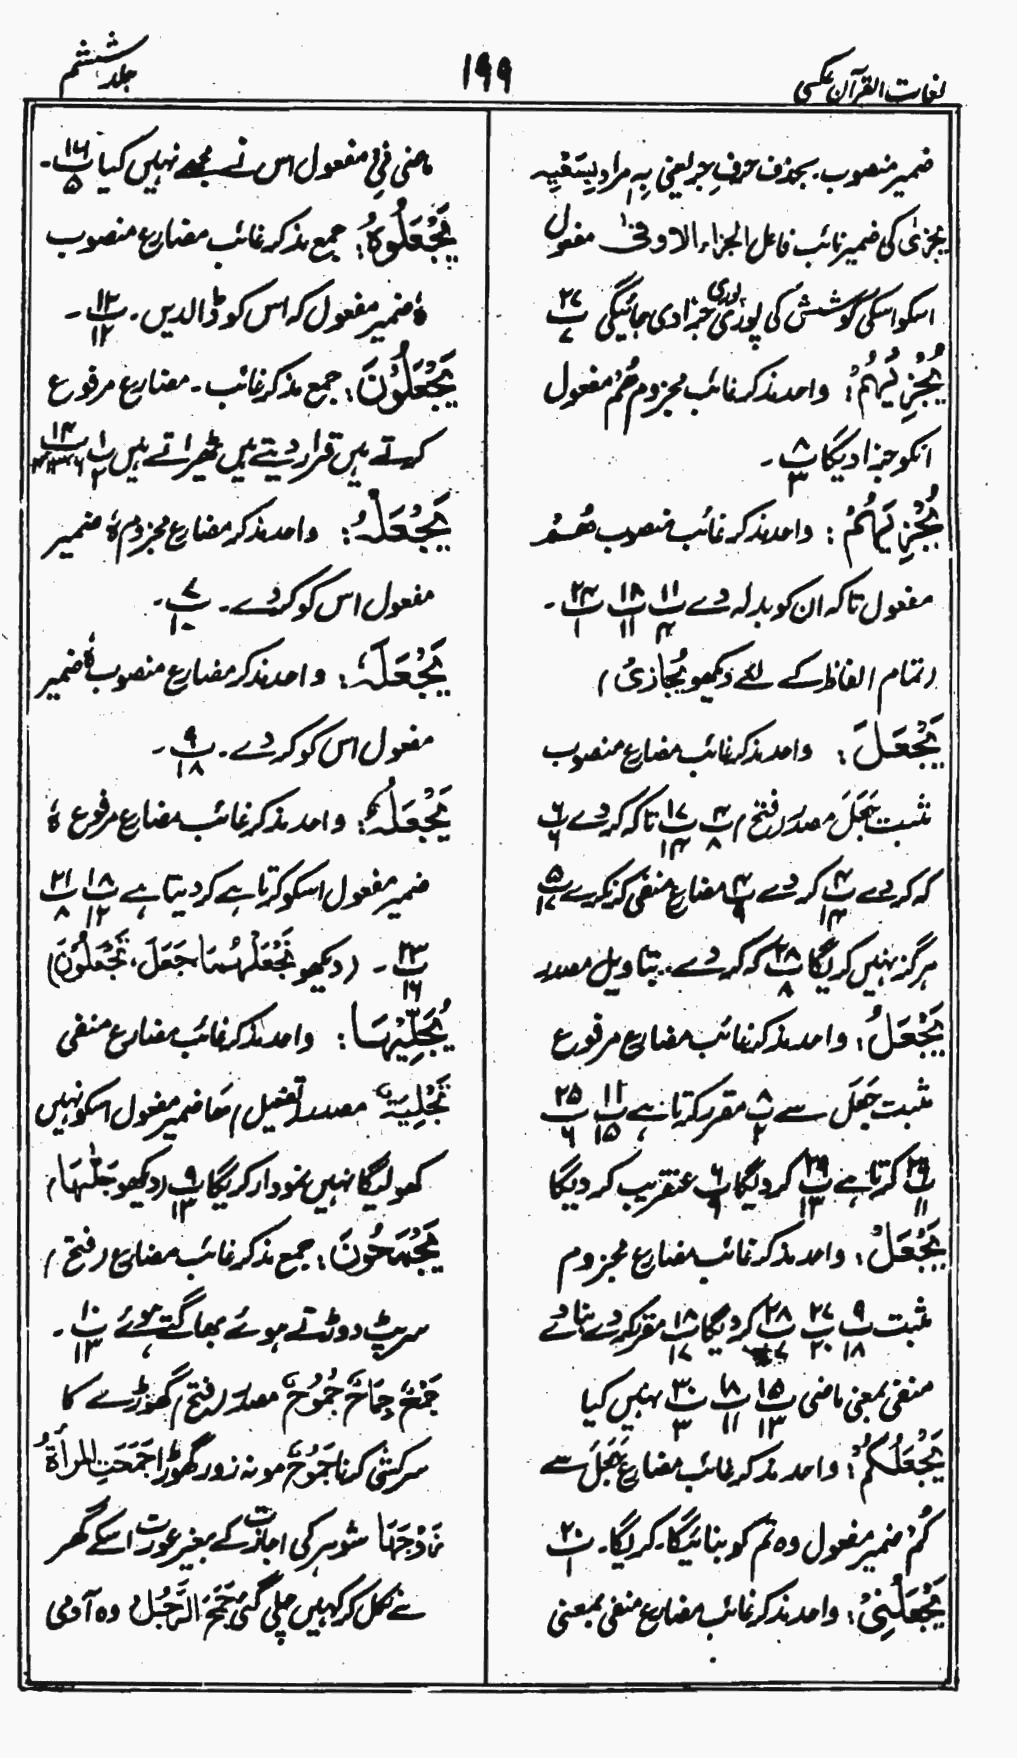 لغات القرآن عکسی
۱۹۹
جلد ششم
ضمیر منصوب۔ بحذف حرفِ جر یعنی بِہٖ مراد بِسَعْیِہٖ
یجزٰی کی ضمیر نائب فاعل الجزاء الاوفیٰ مفعول
اسکو اسکی کوشش کی پوری پوری جزا دی جائیگی ۲۷ پ ۷
یُجْزِیْہِمْ: واحد مذکر غائب مجزوم ھُمْ مفعول
انکو جزا دیگا ۸ پ ۳ ۔
یُجْزِیَہُمْ: واحد مذکر غائب منصوب ھُمْ
مفعول تاکہ ان کو بدلہ دے ۱۱ پ ۴ ۱۸ پ ۱۱ ۲۴ پ ۱ ۔
(تمام الفاظ کے لئے دیکھو یُجَازِیْ)
یَجْعَلَ: واحد مذکر غائب مضارع منصوب
مثبت جَعَلَ مصدر (فتح) ۴ پ ۸ ۱۷ پ ۱۴ تاکہ کر دے ۶ پ ۶
کہ کر دے ۴ پ ۱۴ کر دے ۴ پ ۹ مضارع منفی کہ نہ کرے ۵ پ ۱۷
ہرگز نہیں کریگا ۲۸ پ ۸ کہ کر دے۔ بتاویل مصدر
یَجْعَلُ: واحد مذکر غائب مضارع مرفوع
مثبت جَعَلَ سے ۸ پ ۲ مقرر کرتا ہے ۱۱ پ ۱۵ ۲۵ پ ۶
۲۹ پ ۱۱ کرتا ہے ۲۹ پ ۱۳ کر دیگا ۶ پ ۹ عنقریب کر دیگا
یَجْعَلْ: واحد مذکر غائب مضارع مجزوم
مثبت ۹ پ ۱۸ ۲۷ پ ۲۰ ۲۸ پ ۱۷ کر دیگا ۱۸ پ ۱۷ مقرر کر دے بنا دے
منفی بمعنی ماضی ۱۵ پ ۱۳ ۱۸ پ ۱۱ ۳۰ پ ۳ نہیں کیا
یَجْعَلُکُمْ: واحد مذکر غائب مضارع جَعَلَ سے
کُمْ ضمیر مفعول وہ تم کو بنائیگا۔ کریگا۔ ۲۰ پ ۱
یَجْعَلْنِیْ: واحد مذکر غائب مضارع منفی بمعنی
ماضی نِیْ مفعول اس نے مجھے نہیں کیا ۱۶ پ ۵ ۔
یَجْعَلُوْہُ: جمع مذکر غائب مضارع منصوب
ہٗ ضمیر مفعول کہ اس کو ڈالدیں۔ ۱۲ پ ۱۲ ۔
یَجْعَلُوْنَ: جمع مذکر غائب۔ مضارع مرفوع
کرتے ہیں قرار دیتے ہیں ٹھیراتے ہیں ۱ پ ۲ ۱۴ پ
یَجْعَلْہُ: واحد مذکر مضارع مجزوم ہٗ ضمیر
مفعول اس کو کر دے۔ ۷ پ ۱۰ ۔
یَجْعَلَہٗ: واحد مذکر مضارع منصوب ہٗ ضمیر
مفعول اس کو کر دے۔ ۹ پ ۱۸ ۔
یَجْعَلُہٗ: واحد مذکر غائب مضارع مرفوع ہٗ
ضمیر مفعول اسکو کرتا ہے کر دیتا ہے ۱۸ پ ۱۲ ۲۱ پ ۸
۲۳ پ ۱۶ ۔ (دیکھو نَجْعَلْہُمَا جَعَلَ، تَجْعَلُوْنَ)
یُجَلِّیْہَا: واحد مذکر غائب مضارع منفی
تَجْلِیَۃٌ مصدر (تفعیل) ھَا ضمیر مفعول اسکو نہیں
کھولیگا نہیں نمودار کریگا ۹ پ ۱۳ (دیکھو جَلّٰہَا)
یَجْمَحُوْنَ: جمع مذکر غائب مضارع (فتح)
سرپٹ دوڑتے ہوئے بھاگتے ہوئے ۱۰ پ ۱۳ ۔
جَمْحٌ وَجِمَاحٌ جُمُوْحٌ مصدر (فتح) گھوڑے کا
سرکشی کرنا جَمُوْحٌ مونہ زور گھوڑا جَمَحَتِ المرأۃُ
زَوْجَہَا شوہر کی اجازت کے بغیر عورت اسکے گھر
سے نکل کر کہیں چلی گئی جَمَحَ الرَّجُلُ وہ آدمی